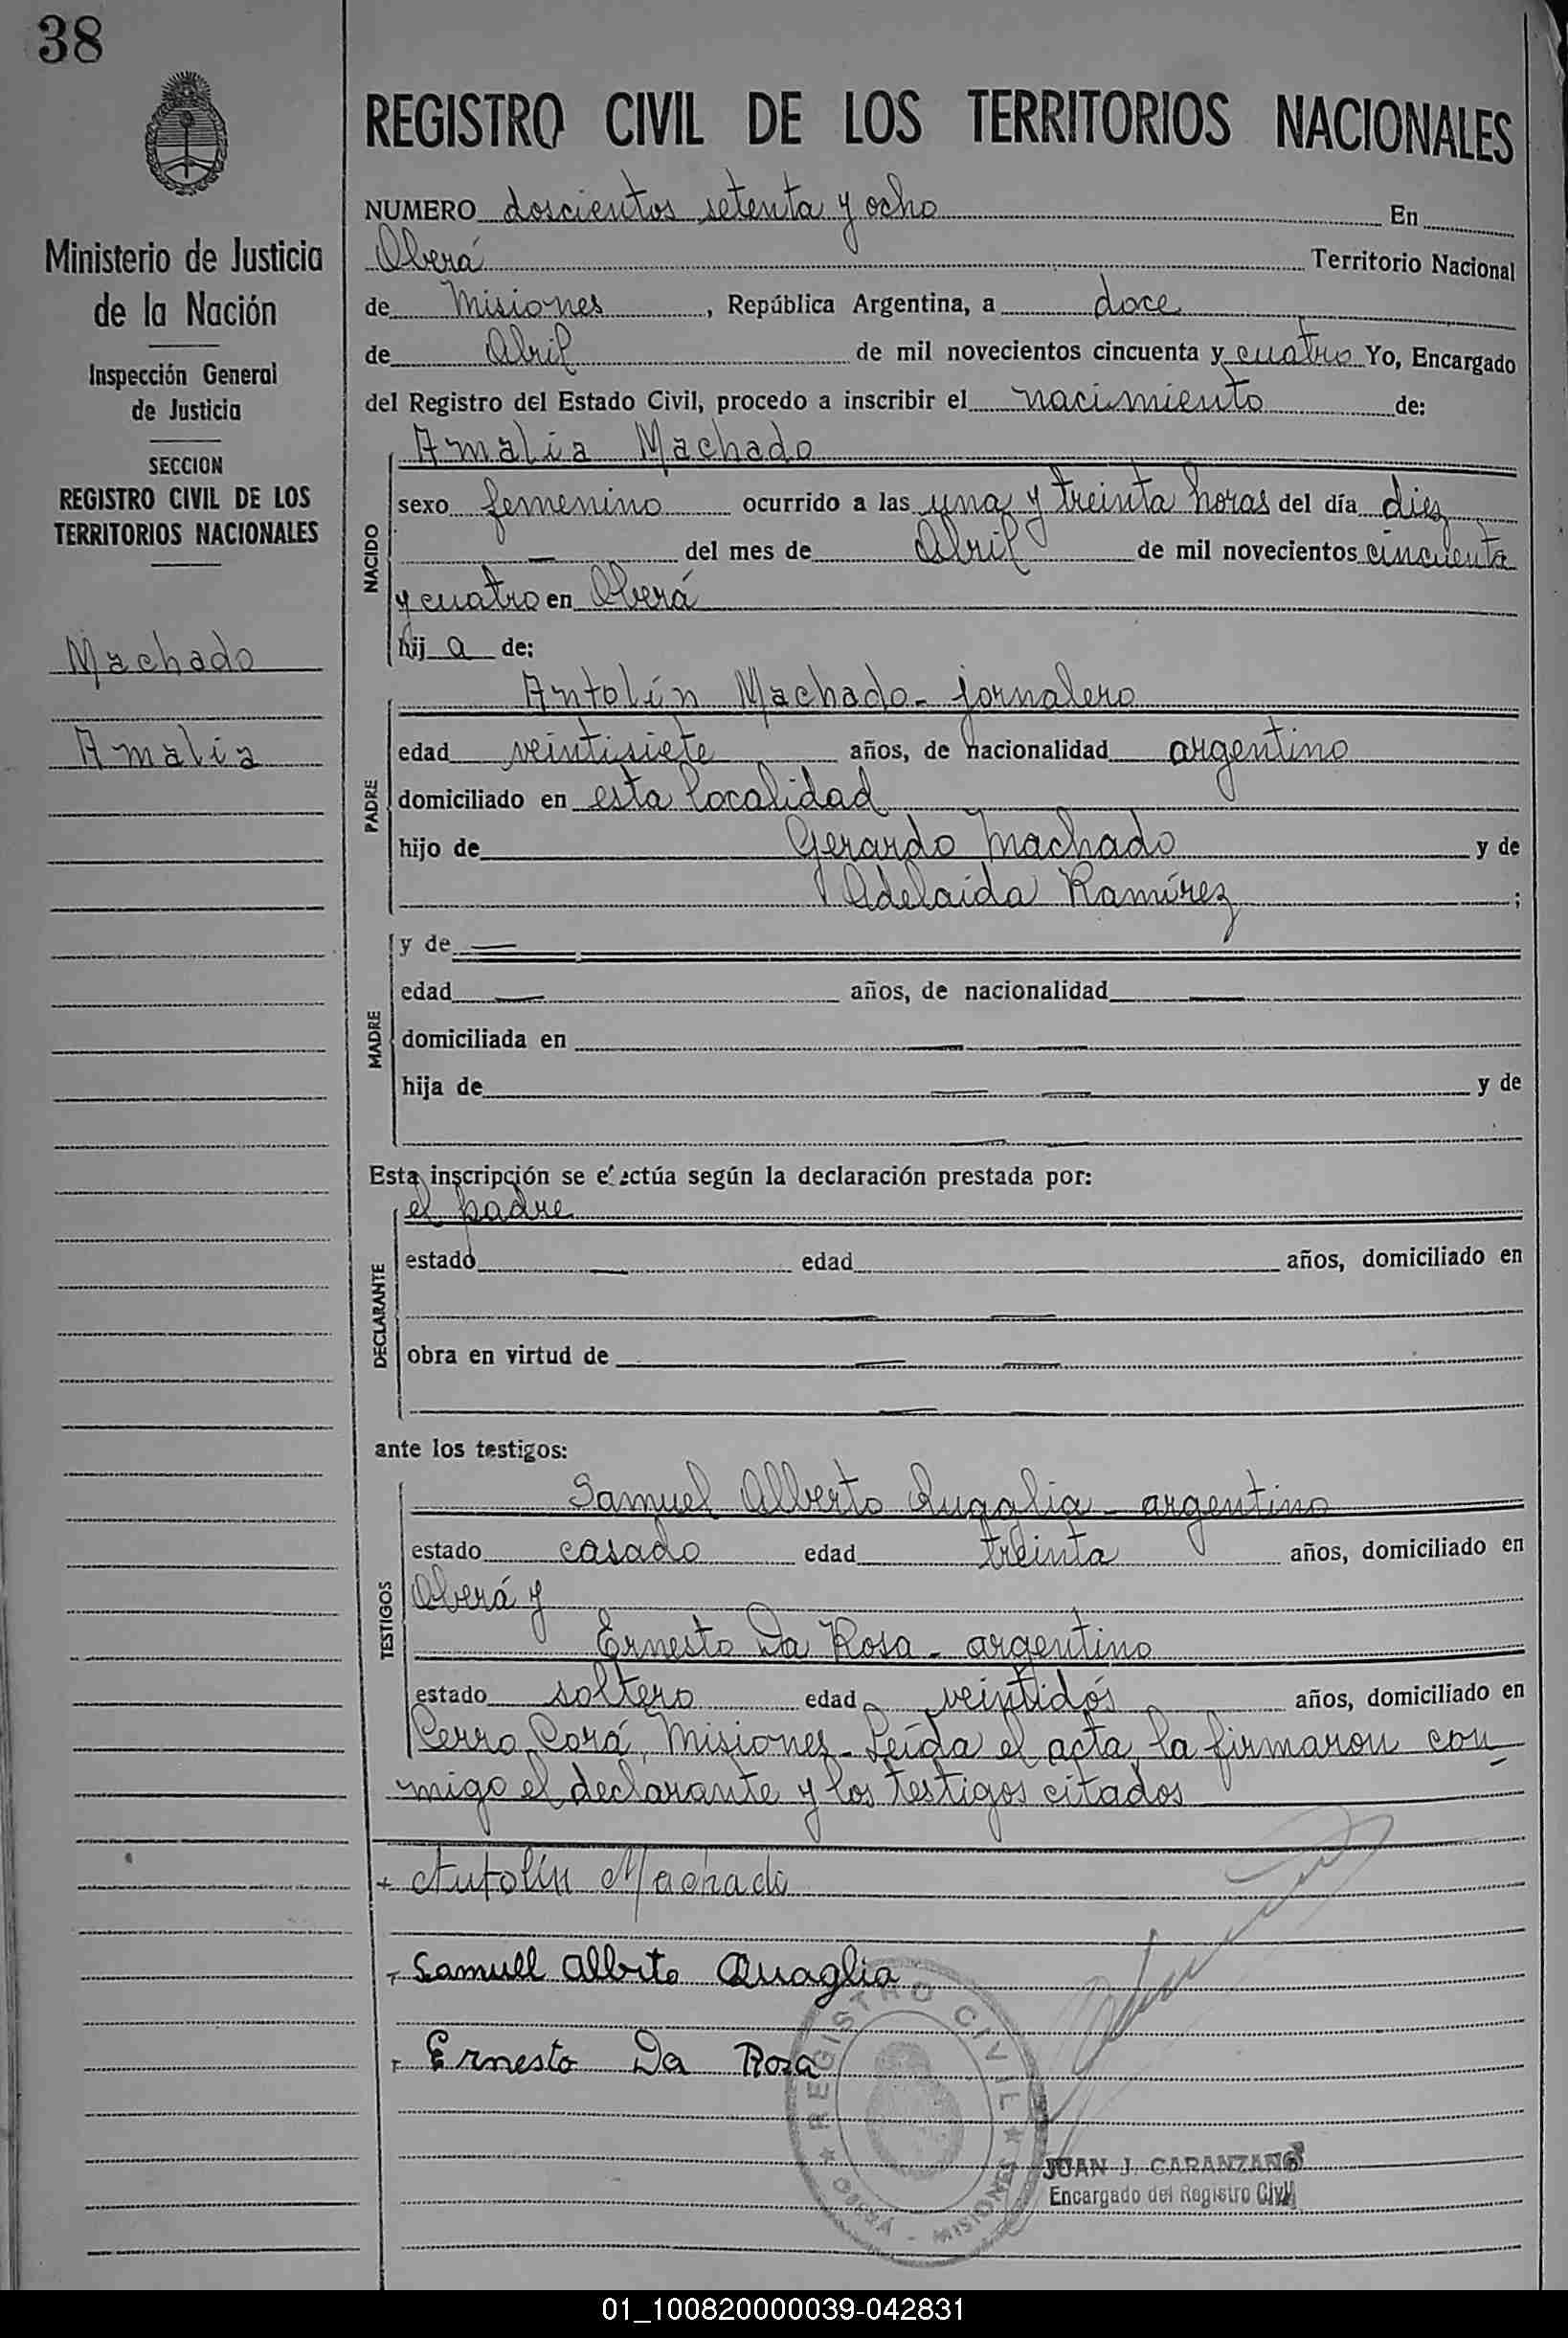 38
REGISTRO CIVIL DE LOS TERRITORIOS NACIONALES
Ministerio de Justicia
de la Nación
Inspección General
de Justicia
SECCION
REGISTRO CIVIL DE LOS
TERRITORIOS NACIONALES
Machado
Amalia
NUMERO doscientos setenta y ocho En
Oberá Territorio Nacional
de Misiones, República Argentina, a doce
de Abril de mil novecientos cincuenta y cuatro Yo, Encargado
del Registro del Estado Civil, procedo a inscribir el nacimiento de:
NACIDO
Amalia Machado
sexo femenino ocurrido a las una y treinta horas del día diez
— del mes de Abril de mil novecientos cincuenta
y cuatro en Oberá
hij a de:
PADRE
Antolín Machado - jornalero
edad veintisiete años, de nacionalidad argentino
domiciliado en esta localidad
hijo de Gerardo Machado y de
Adelaida Ramírez ;
MADRE
y de —
edad — años, de nacionalidad —
domiciliada en — —
hija de — — y de
— —
Esta inscripción se efectúa según la declaración prestada por:
DECLARANTE
el padre
estado — edad — años, domiciliado en
— —
obra en virtud de — —
— —
ante los testigos:
TESTIGOS
Samuel Alberto Quaglia - argentino
estado casado edad treinta años, domiciliado en
Oberá y
Ernesto Da Rosa - argentino
estado soltero edad veintidós años, domiciliado en
Cerro Corá, Misiones - Leída el acta, la firmaron con
migo el declarante y los testigos citados
+ Antolín Machado
Samuell Albrto Quaglia
Ernesto Da Roza
★ REGISTRO CIVIL ★
OBERÁ - MISIONES
JUAN J. CARANZANO
Encargado del Registro Civil
01_100820000039-042831